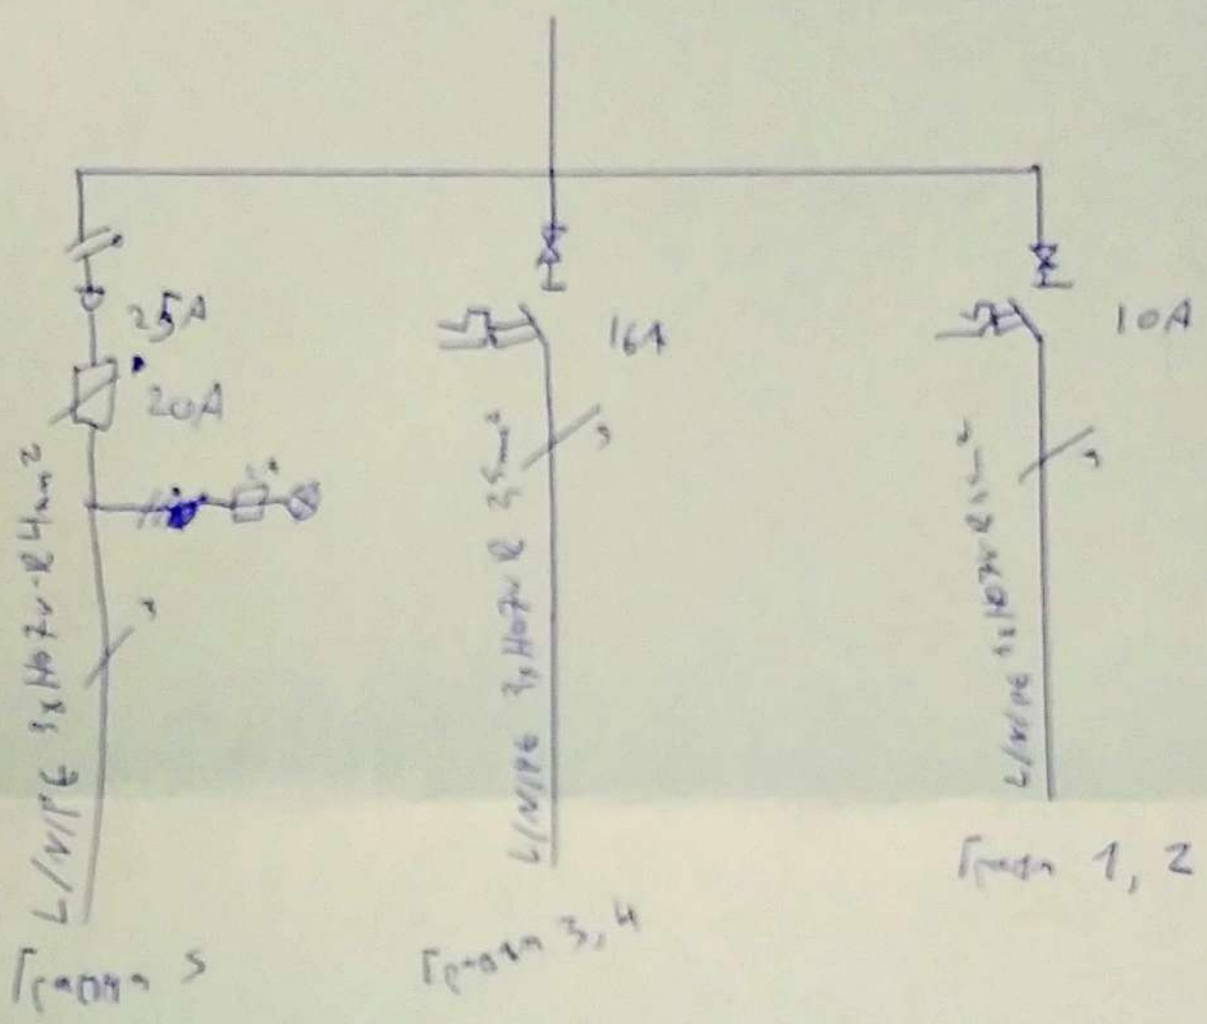 25A
20A
L/N/PE 3xH07V-R 4mm²
Γραμμη 5
16A
L/N/PE 3xH07V R 2,5mm²
Γραμμη 3,4
10A
L/N/PE 3xH07V R
Γραμμη 1, 2